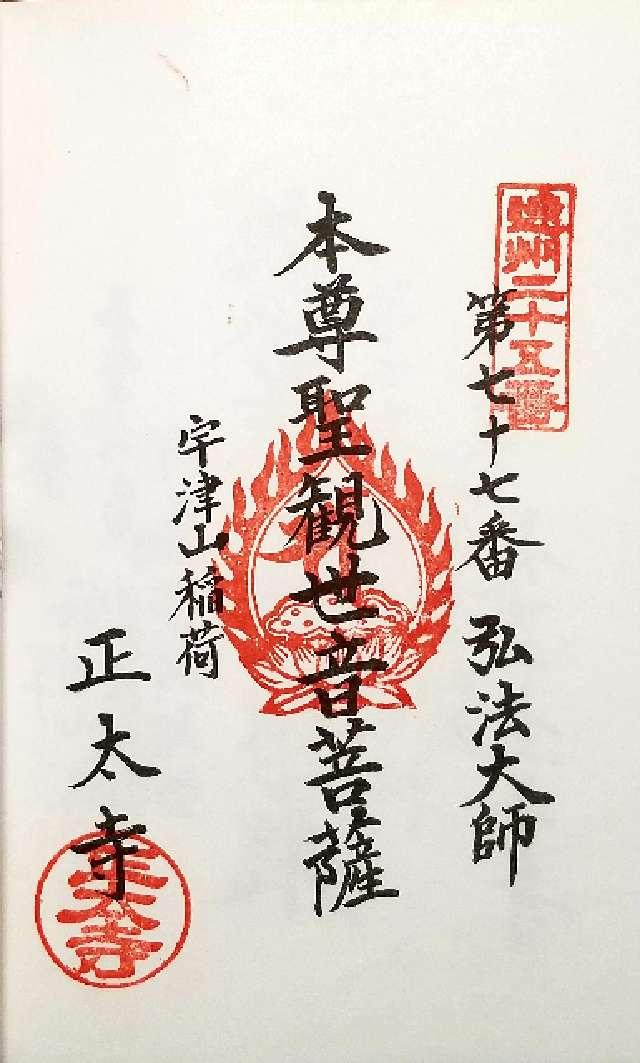 遠州二十五番
第七十七番 弘法大師
本尊聖観世音菩薩
宇津山稲荷
正太寺
正太寺